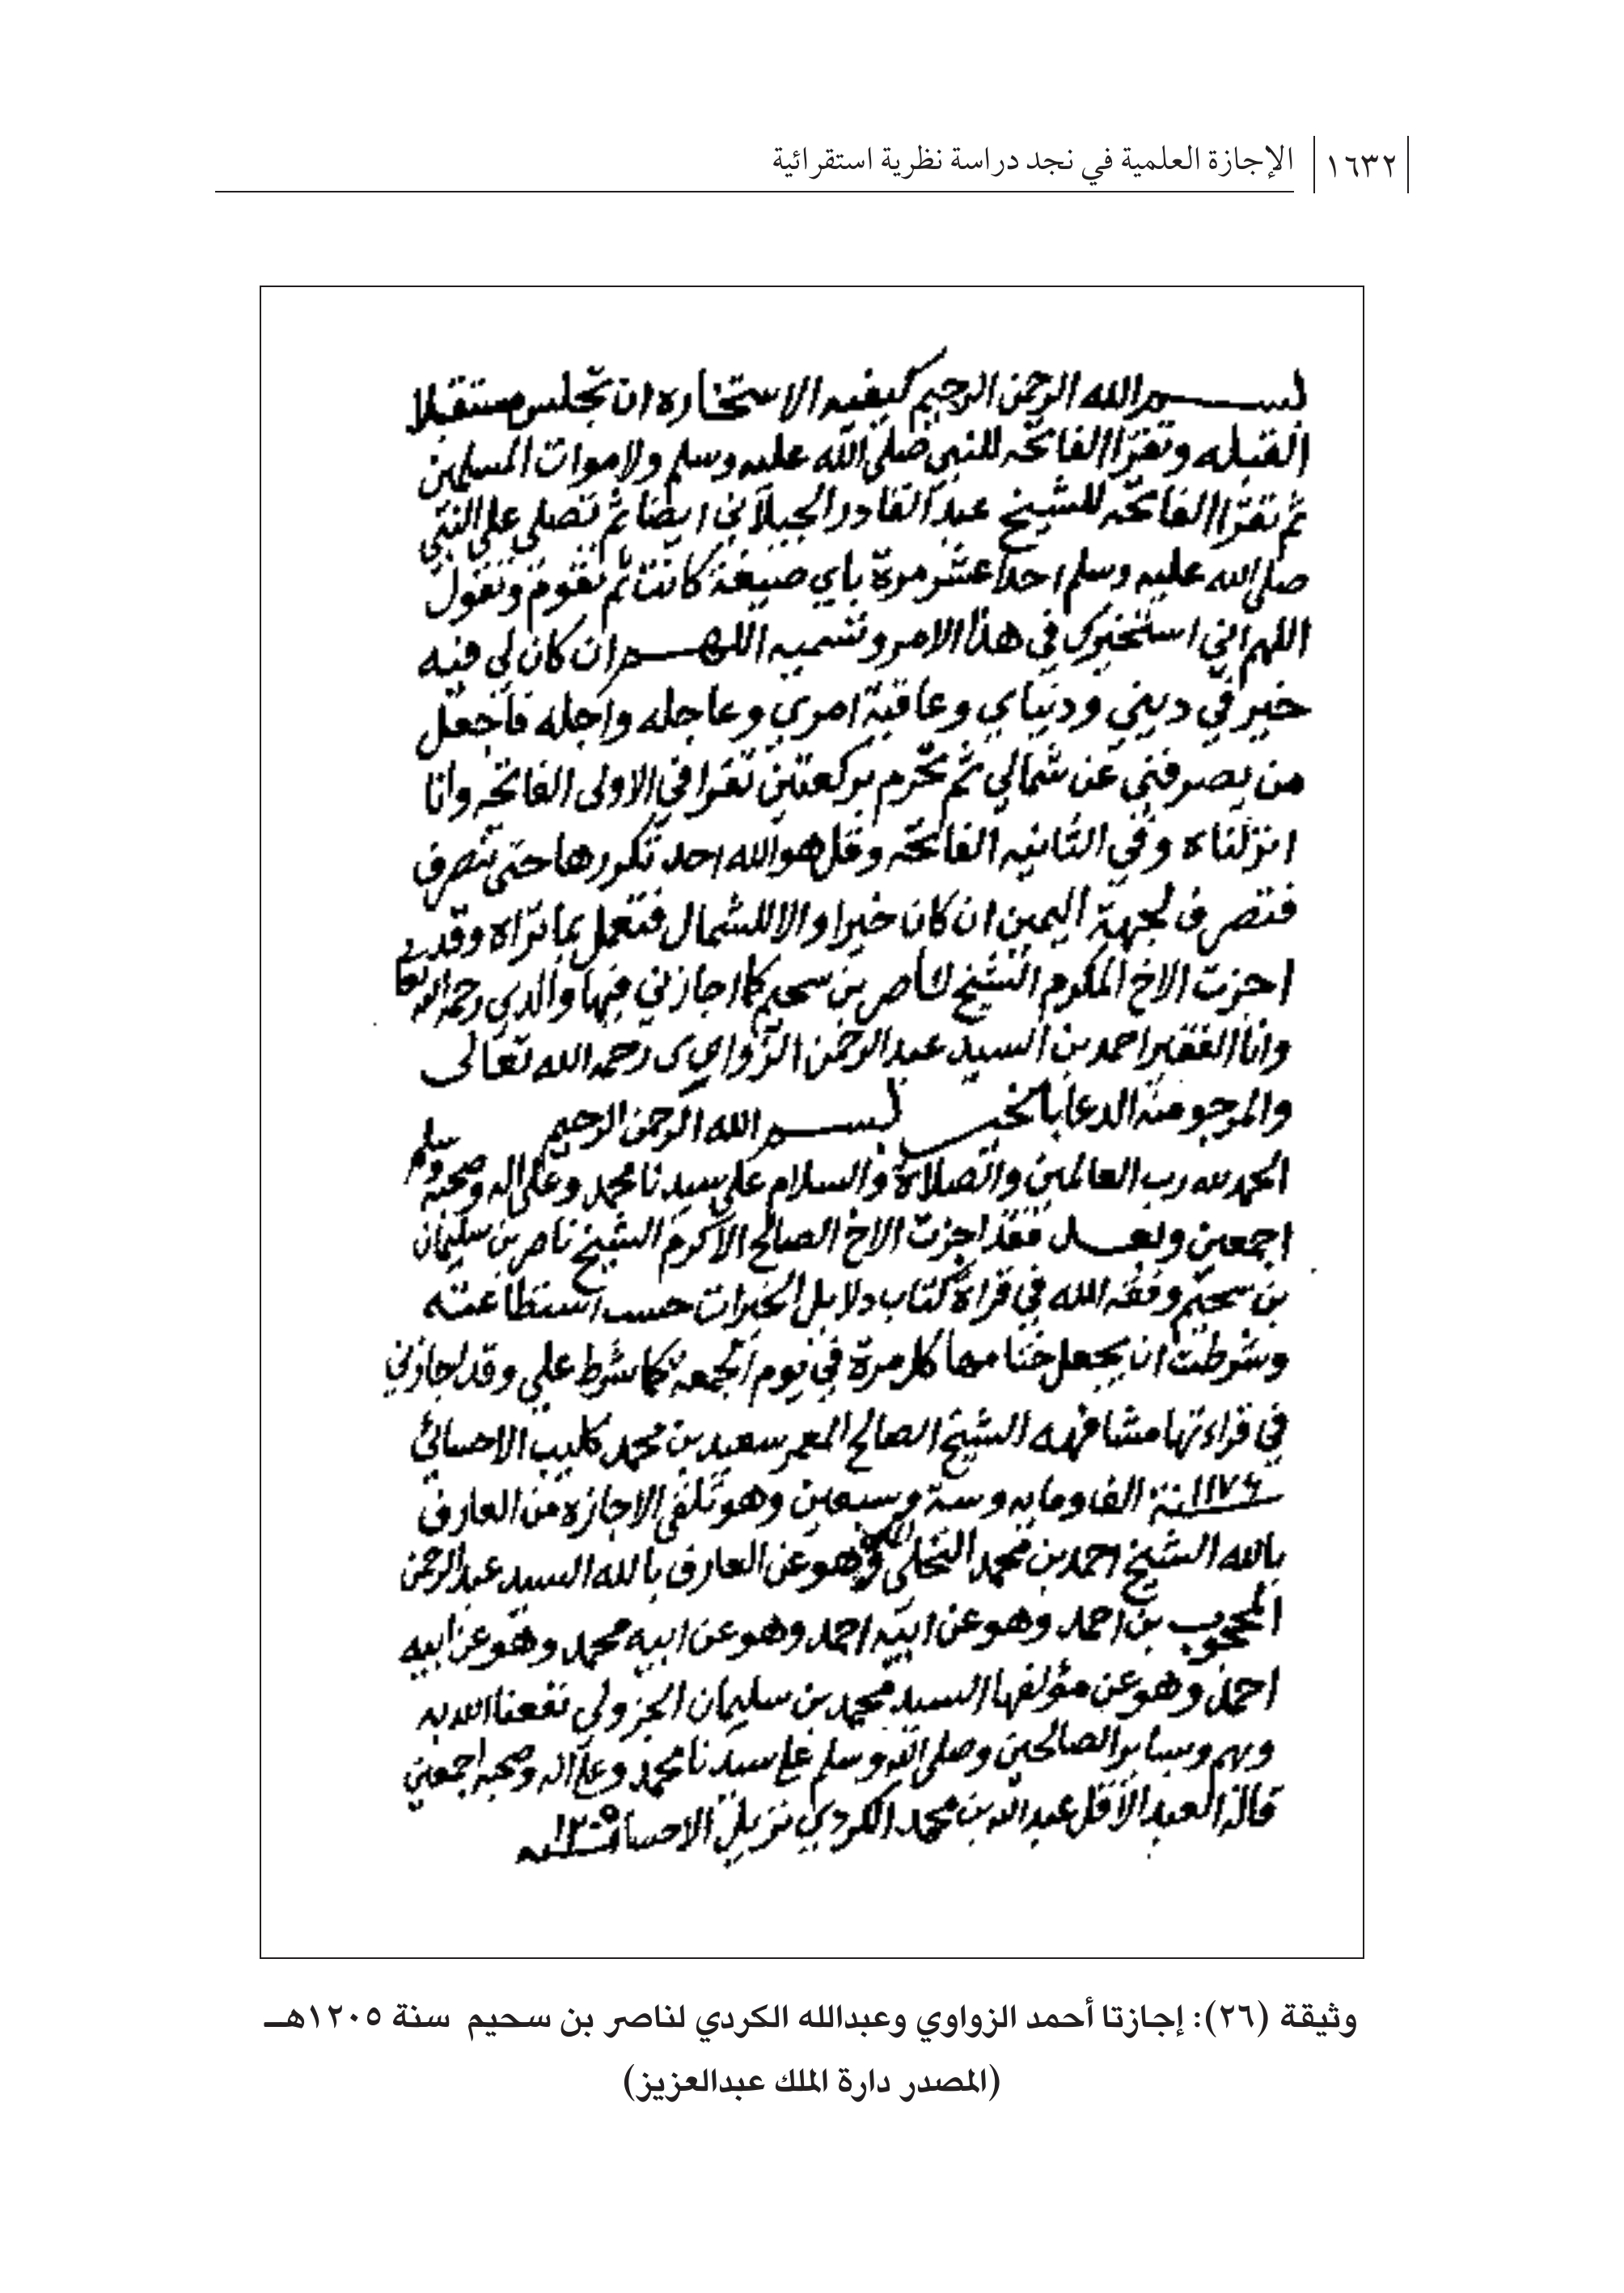 ١٦٣٢
الإجازة العلمية في نجد دراسة نظرية استقرائية
بسم الله الرحمن الرحيم كيفيه الاستخاره ان تجلس مستقبلا
القبله وتقرا الفاتحه للنبي صلى الله عليه وسلم ولاموات المسلمين
ثم تقرا الفاتحه للشيخ عبد القادر الجيلاني ايضا ثم تصلي على النبي
صلى الله عليه وسلم احدا عشر مرة باي صيغة كانت ثم تقوم وتقول
اللهم اني استخيرك في هذا الامر وتسميه اللهم ان كان لي فيه
خير في ديني ودنياي وعاقبة امري وعاجله واجله فاجعل
من يصرفني عن شمالي ثم تحرم بركعتين تقرا في الاولى الفاتحه وانا
انزلناه وفي الثانيه الفاتحه وقل هو الله احد تكررها حتى تنصرف
فتصرف لجهة اليمين ان كان خيرا والا للشمال فتعمل بما تراه وقد
اجزت الاخ المكرم الشيخ ناصر بن سحيم كما اجازني فيها والدي رحمه الله تعا
وانا الفقير احمد بن السيد عبد الرحمن الزواوي رحمه الله تعالى
والمرجو منه الدعا بالخير بسم الله الرحمن الرحيم
الحمد لله رب العالمين والصلاة والسلام على سيدنا محمد وعلى اله وصحبه وسلم
اجمعين وبعد فقد اجزت الاخ الصالح الاكرم الشيخ ناصر بن سليمان
بن سحيم وفقه الله في قراة كتاب دلايل الخيرات حسب استطاعته
وشرطت ان يجعل ختامها كل مرة في يوم الجمعه كما شرط علي وقد اجازني
في قراءتها مشافهه الشيخ الصالح المعمر سعيد بن محمد كليب الاحسائي
١١٧٦ سنة الف ومايه وستة وسبعين وهو تلقى الاجازه من العارف
بالله الشيخ احمد بن محمد النخلي وهو عن العارف بالله السيد عبد الرحمن
المحجوب بن احمد وهو عن ابيه احمد وهو عن ابيه محمد وهو عن ابيه
احمد وهو عن مؤلفها السيد محمد بن سليمان الجزولي نفعنا الله به
وبهم وسياير الصالحين وصلى الله وسلم على سيدنا محمد وعلى اله وصحبه اجمعين
قاله العبد الاقل عبد الله بن محمد الكردي نزيل الاحسا ١٢٠٥
وثيقة (٢٦): إجازتا أحمد الزواوي وعبدالله الكردي لناصر بن سحيم سنة ١٢٠٥هـ
(المصدر دارة الملك عبدالعزيز)